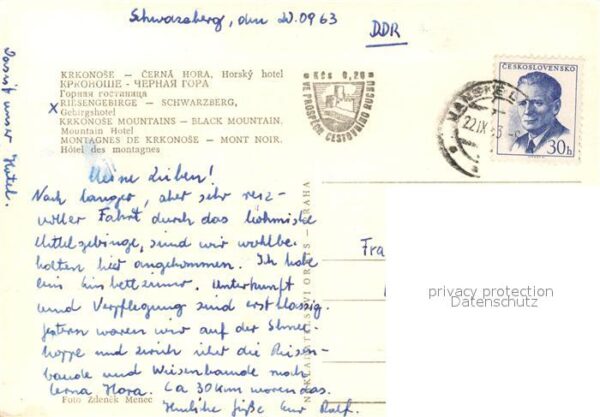 Schwarzberg, den 20.09.63
DDR
KRKONOŠE — ČERNÁ HORA, Horský hotel
КРКОНОШЕ - ЧЕРНАЯ ГОРА
Горная гостиница
x RIESENGEBIRGE — SCHWARZBERG,
Gebirgshotel
KRKONOŠE MOUNTAINS — BLACK MOUNTAIN,
Mountain Hotel
MONTAGNES DE KRKONOŠE — MONT NOIR,
Hôtel des montagnes
Kčs 0,20
VE PROSPĚCH CESTOVNÍHO RUCHU
ČESKOSLOVENSKO
30h
22.IX.
Das ist unser Hotel.
Meine Lieben!
Nach langer, aber sehr reiz-
voller Fahrt durch das böhmische
Mittelgebirge, sind wir wohlbe-
halten hier angekommen. Ich habe
ein Einbettzimmer. Unterkunft
und Verpflegung sind erstklassig.
Gestern waren wir auf der Schnee-
koppe und zurück über die Riesen-
baude und Wiesenbaude nach
Cerna Hora. Ca 30 km waren das.
Herzliche Grüße Eur Ralf.
Foto Zdeněk Menec
PRAHA
Fra
privacy protection
Datenschutz